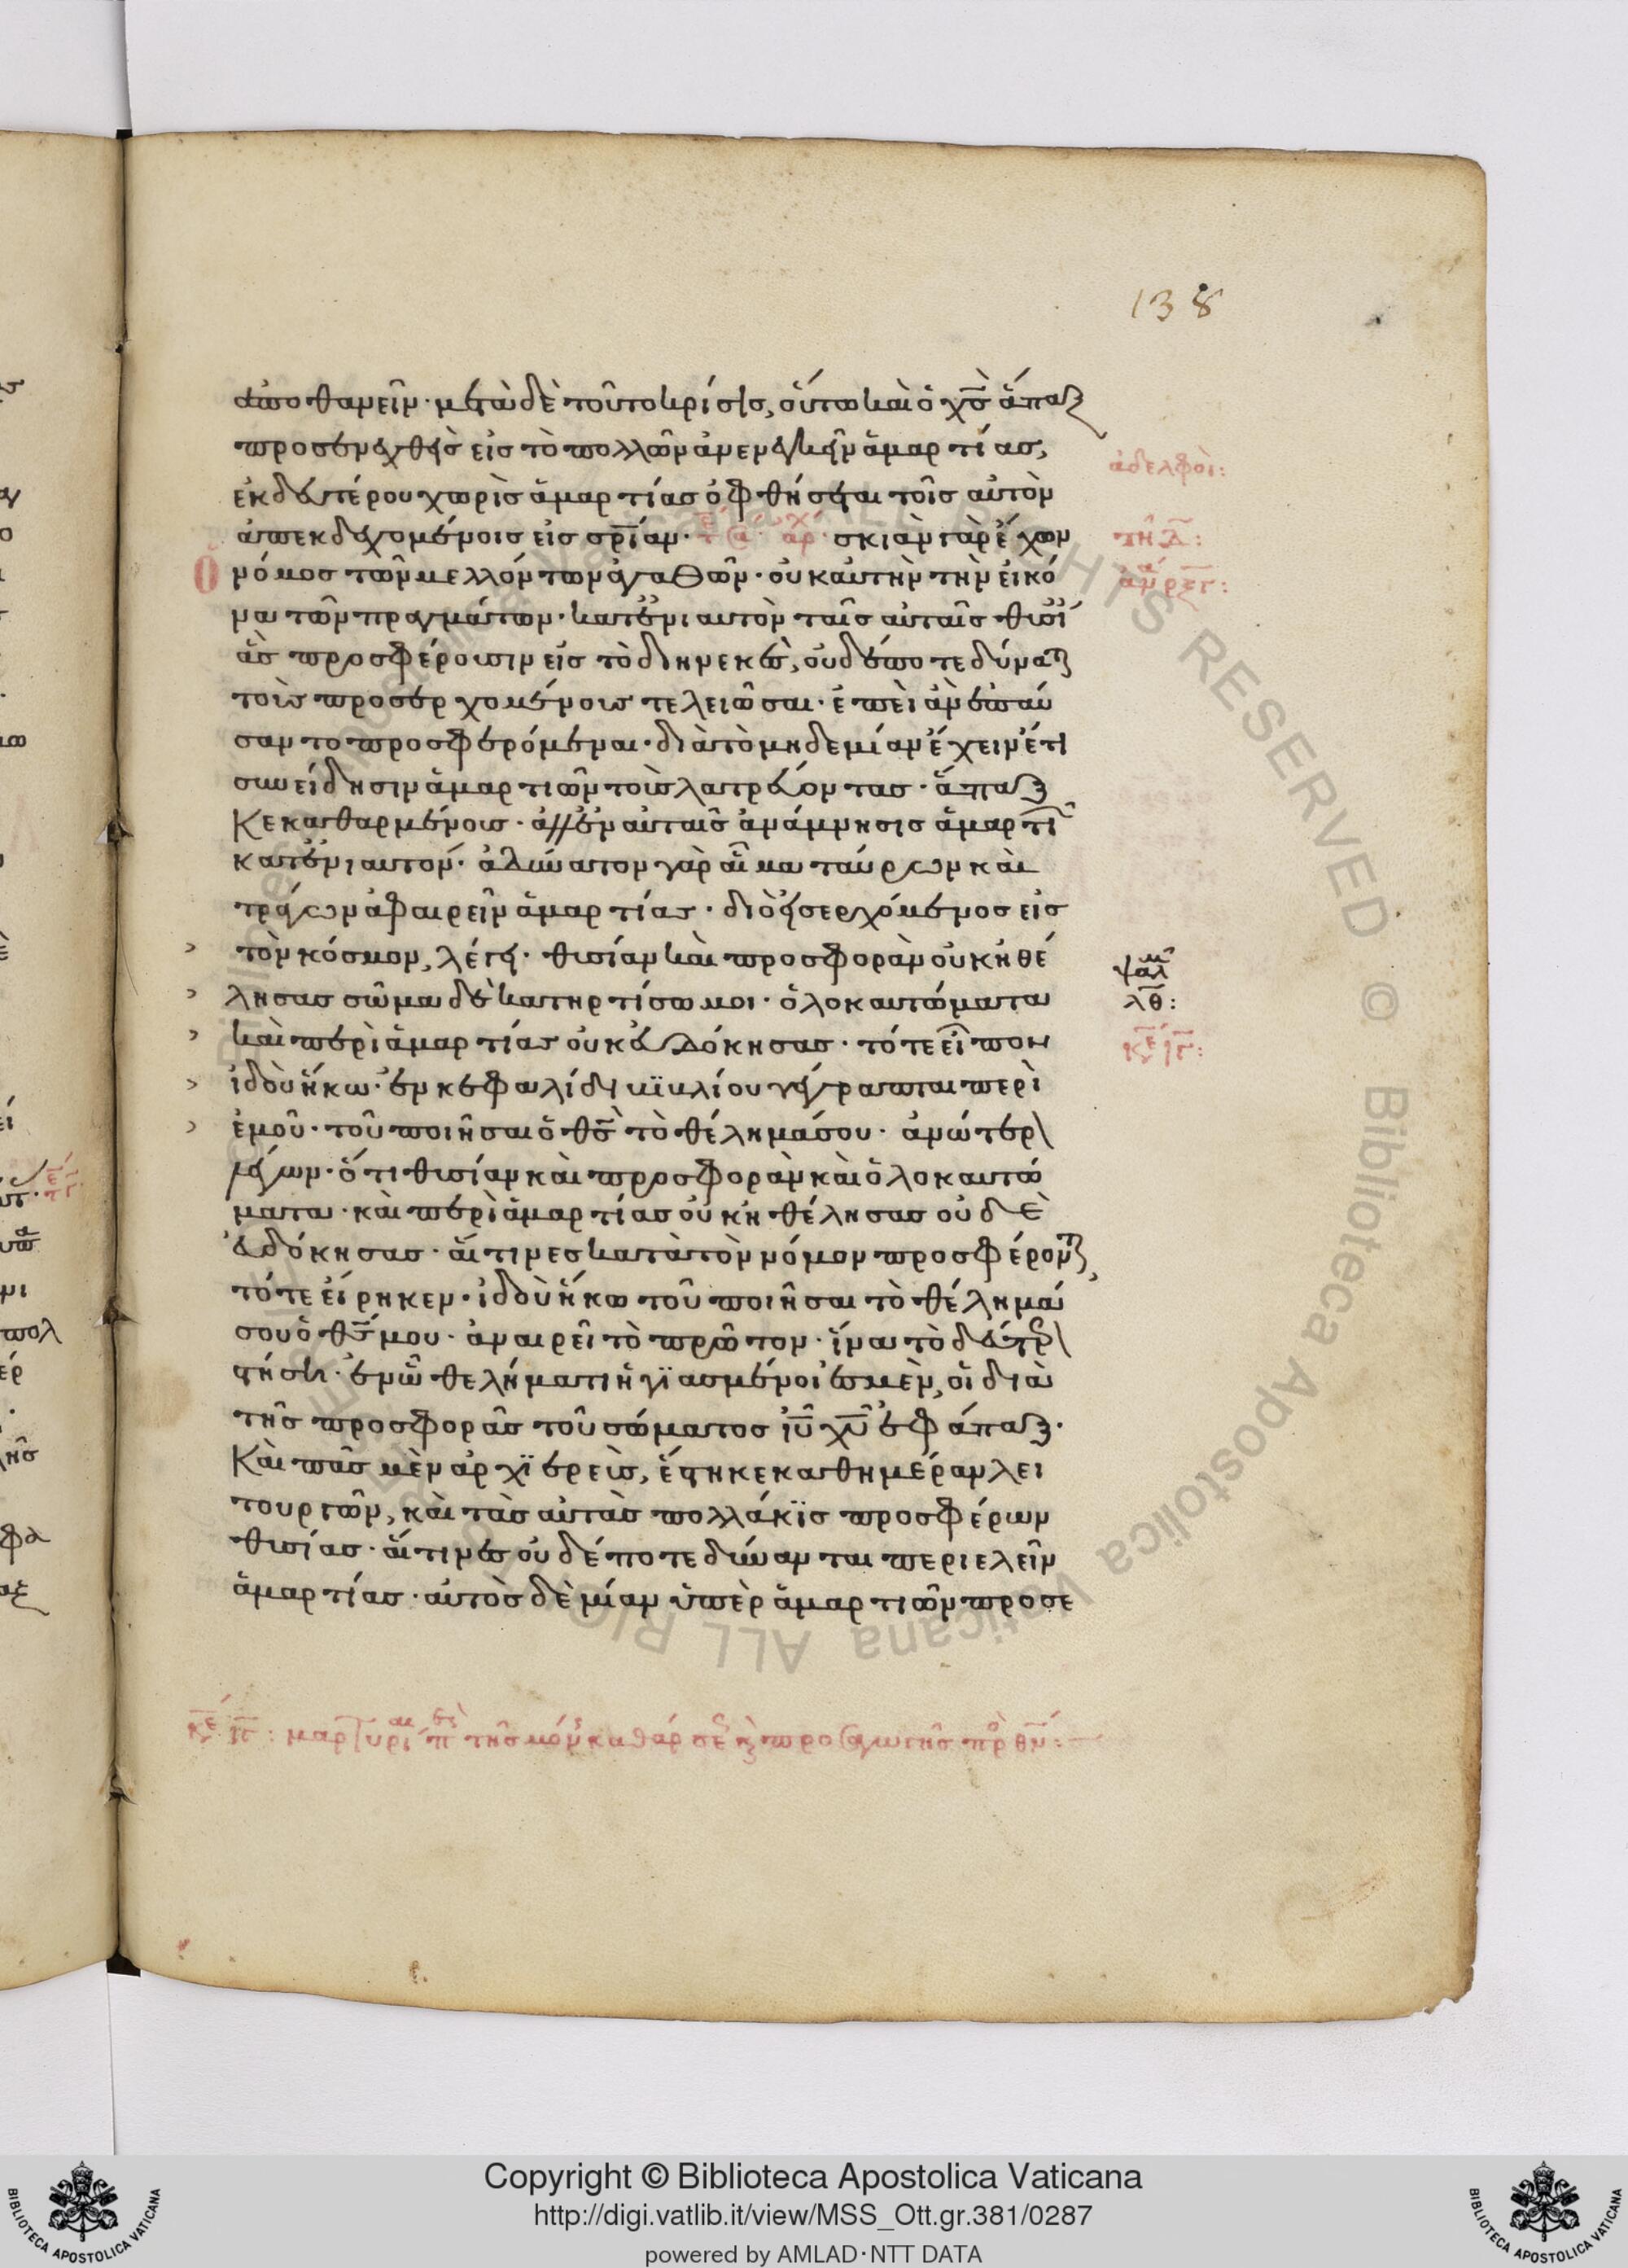 138
ἀποθανεῖν· μετὰ δὲ τοῦτο κρίσις, οὕτω καὶ ὁ χ̅ς̅ ἅπαξ
προσενεχθεὶς εἰς τὸ πολλῶν ἀνενεγκεῖν ἁμαρτίας,
ἐκ δευτέρου χωρὶς ἁμαρτίας ὀφθήσεται τοῖς αὐτὸν
ἀδελφοὶ:
ἀπεκδεχομένοις εἰς σ̅ρ̅ίαν· σκιὰν γὰρ ἔχων
ὁ νόμος τῶν μελλόντων ἀγαθῶν· οὐκ αὐτὴν τὴν εἰκό
να τῶν πραγμάτων· κατ' ἐνιαυτὸν ταῖς αὐταῖς θυσί
ἃς προσφέρουσιν εἰς τὸ διηνεκὲς, οὐδέποτε δύνατ
τοὺς προσερχομένους τελειῶσαι· ἐπεὶ ἂν ἐπαύ
σαντο προσφερόμεναι· διὰ τὸ μηδεμίαν ἔχειν ἔτι
συνείδησιν ἁμαρτιῶν τοὺς λατρεύοντας· ἅπαξ
κεκαθαρμένους· ἀλλ' ἐν αὐταῖς ἀνάμνησις ἁμαρτι
κατ' ἐνιαυτόν· ἀδύνατον γὰρ αἷμα ταύρων καὶ
τράγων ἀφαιρεῖν ἁμαρτίας· διὸ εἰσερχόμενος εἰς
τὸν κόσμον, λέγει· θυσίαν καὶ προσφορὰν οὐκ ἠθέ
λησας σῶμα δὲ κατηρτίσω μοι· ὁλοκαυτώματα
λ̅θ̅:
καὶ περὶ ἁμαρτίας οὐκ εὐδόκησας· τότε εἶπον
ἰδοὺ ἥκω· ἐν κεφαλίδι βϊβλίου γέγραπται περὶ
ἐμοῦ· τοῦ ποιῆσαι ὁ θ̅ς̅ τὸ θέλημά σου· ἀνώτερ
λέγων· ὅτι θυσίαν καὶ προσφορὰν καὶ ὁλοκαυτώ
ματα· καὶ περὶ ἁμαρτίας οὐκ ἠθέλησας οὐδὲ
εὐδόκησας· αἵτινες κατὰ τὸν νόμον προσφέροντ,
τότε εἴρηκεν· ἰδοὺ ἥκω τοῦ ποιῆσαι τὸ θέλημά
σου ὁ θ̅ς̅ μου· ἀναιρεῖ τὸ πρῶτον· ἵνα τὸ δεύτερ
στήσῃ· ἐν ᾧ θελήματι ἡγϊασμένοι ἐσμὲν, οἱ διὰ
τῆς προσφορᾶς τοῦ σώματος ἰ̅υ̅ χ̅υ̅ ἐφάπαξ·
Καὶ πᾶς μὲν ἀρχϊερεὺς, ἕστηκε καθημέραν λει
τουργῶν, καὶ τὰς αὐτὰς πολλάκϊς προσφέρων
θυσίας· αἵτινες οὐδέποτε δύνανται περιελεῖν
ἁμαρτίας· αὐτὸς δὲ μίαν ὑπὲρ ἁμαρτιῶν προσε
Copyright © Biblioteca Apostolica Vaticana
http://digi.vatlib.it/view/MSS_Ott.gr.381/0287
powered by AMLAD·NTT DATA